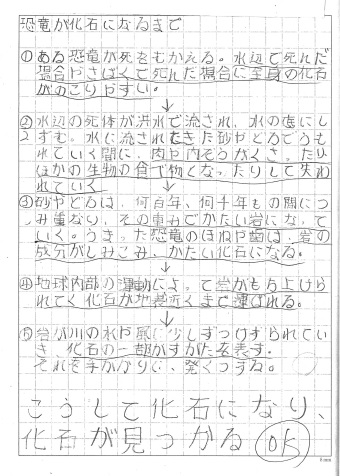 恐竜が化石になるまで
①ある恐竜が死をむかえる。水辺で死んだ
場合やさばくで死んだ場合に全身の化石
がのこりやすい。
↓
②水辺の死体が洪水で流され、水の底にし
ずむ。水に流されてきた砂やどろでうも
れていく間に、肉や内ぞうがくさったり
ほかの生物の食べ物となったりして失わ
れていく
↓
③砂やどろは、何百年、何千年もの間につ
み重なり、その重みでかたい岩になって
いく。うまった恐竜のほねや歯は、岩の
成分がしみこみ、かたい化石になる。
↓
④地球内部の運動によって岩がもち上げら
れてく化石が地表近くまで運ばれる。
↓
⑤岩が川の水や風に少しずつけずられてい
き、化石の一部がすがたを表す.
それを手がかりに、発くつする。
こうして化石になり、
化石が見つかる OK